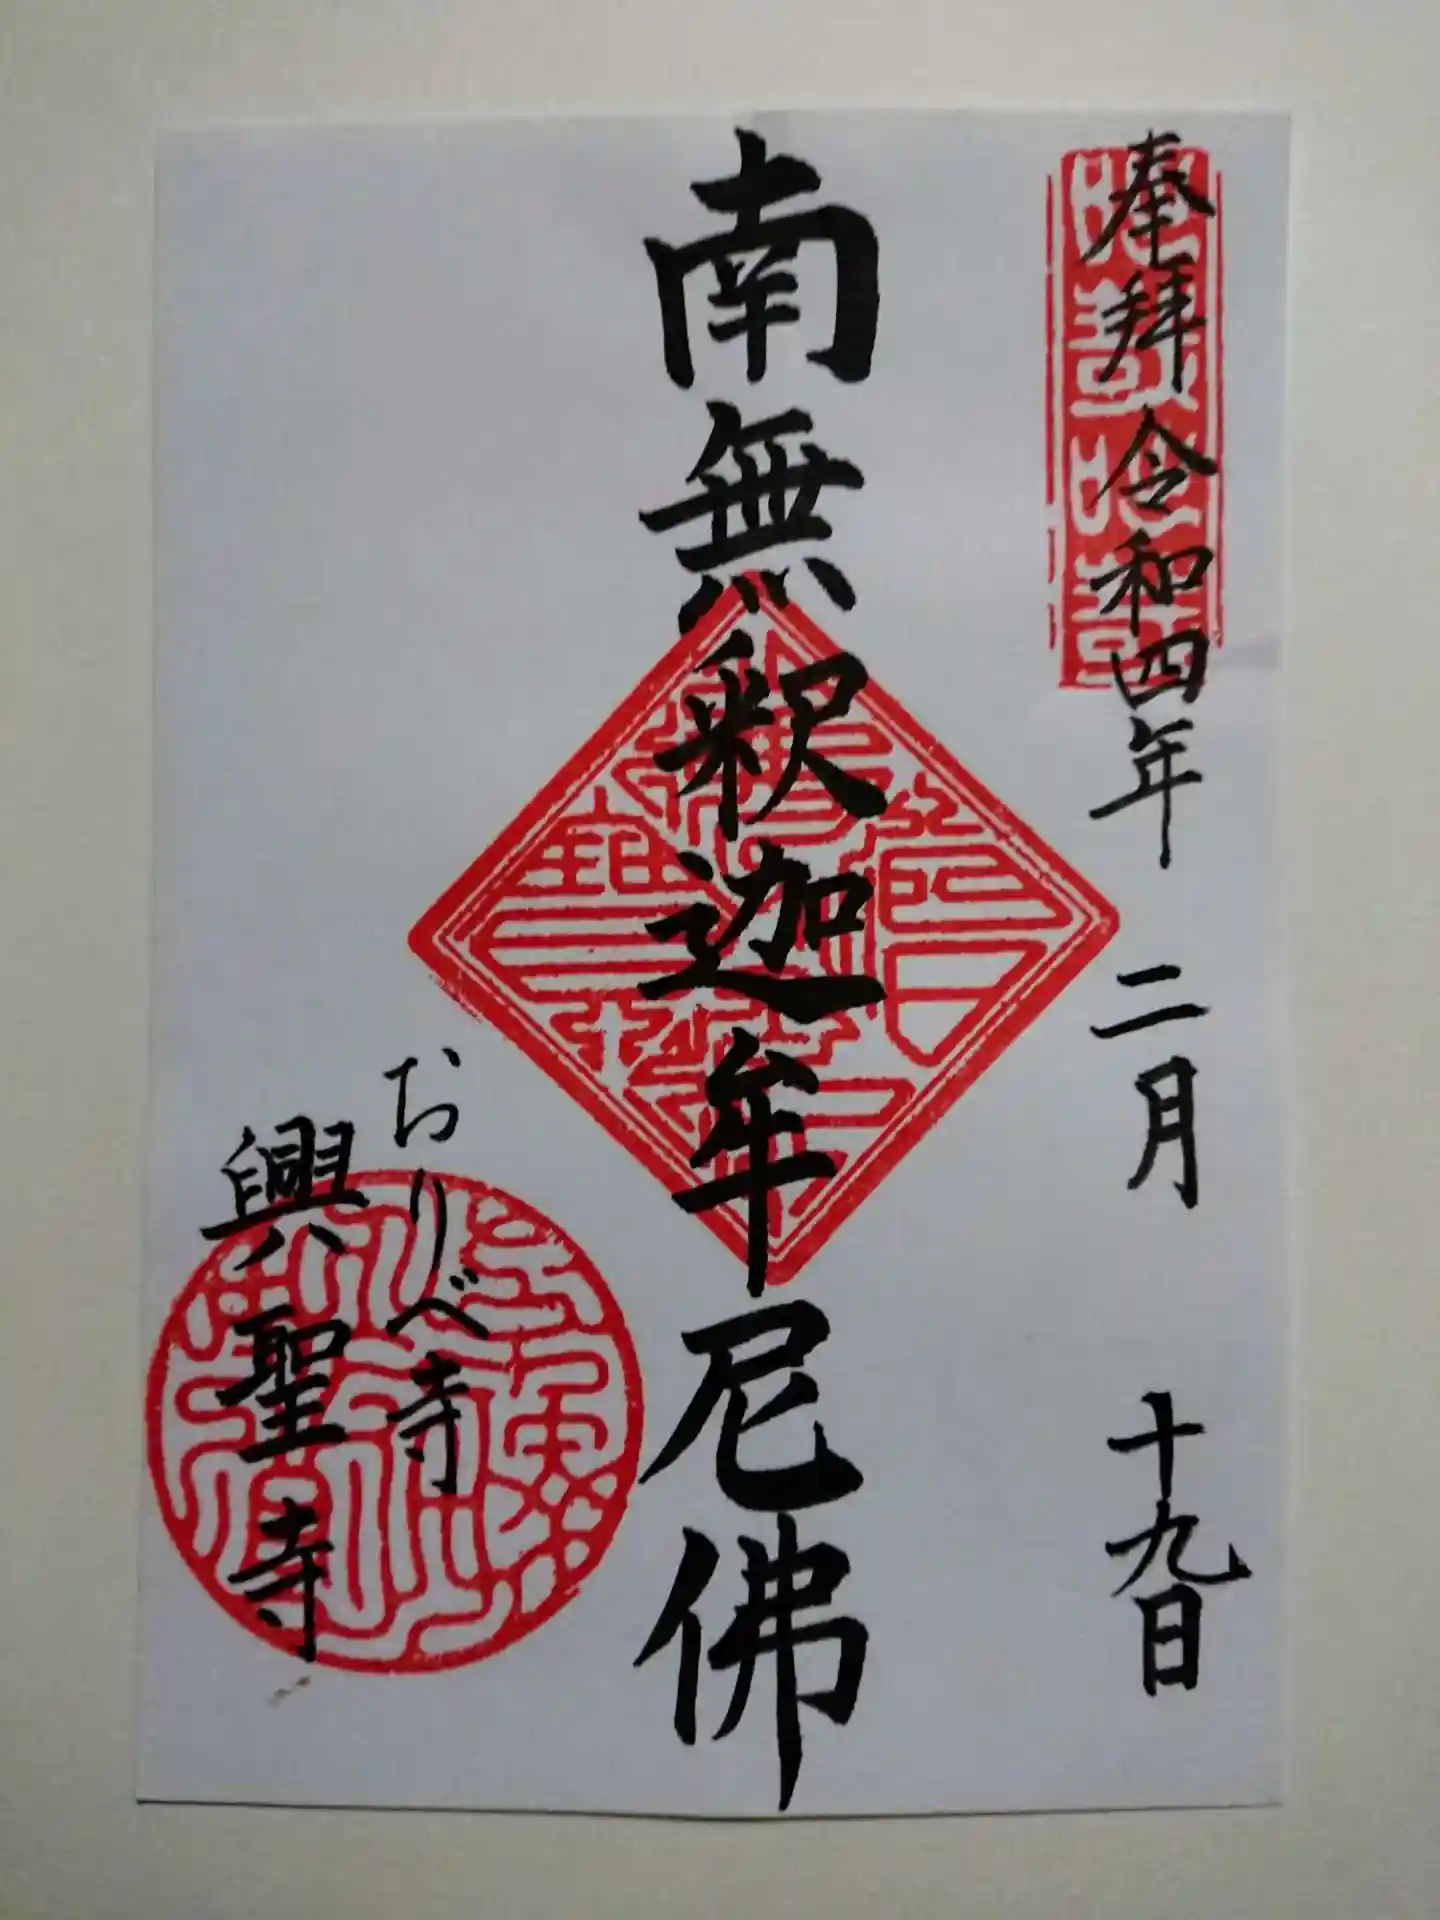 奉拜 令和四年 二月 十九日
南無釈迦牟尼佛
おりべ寺
興聖寺